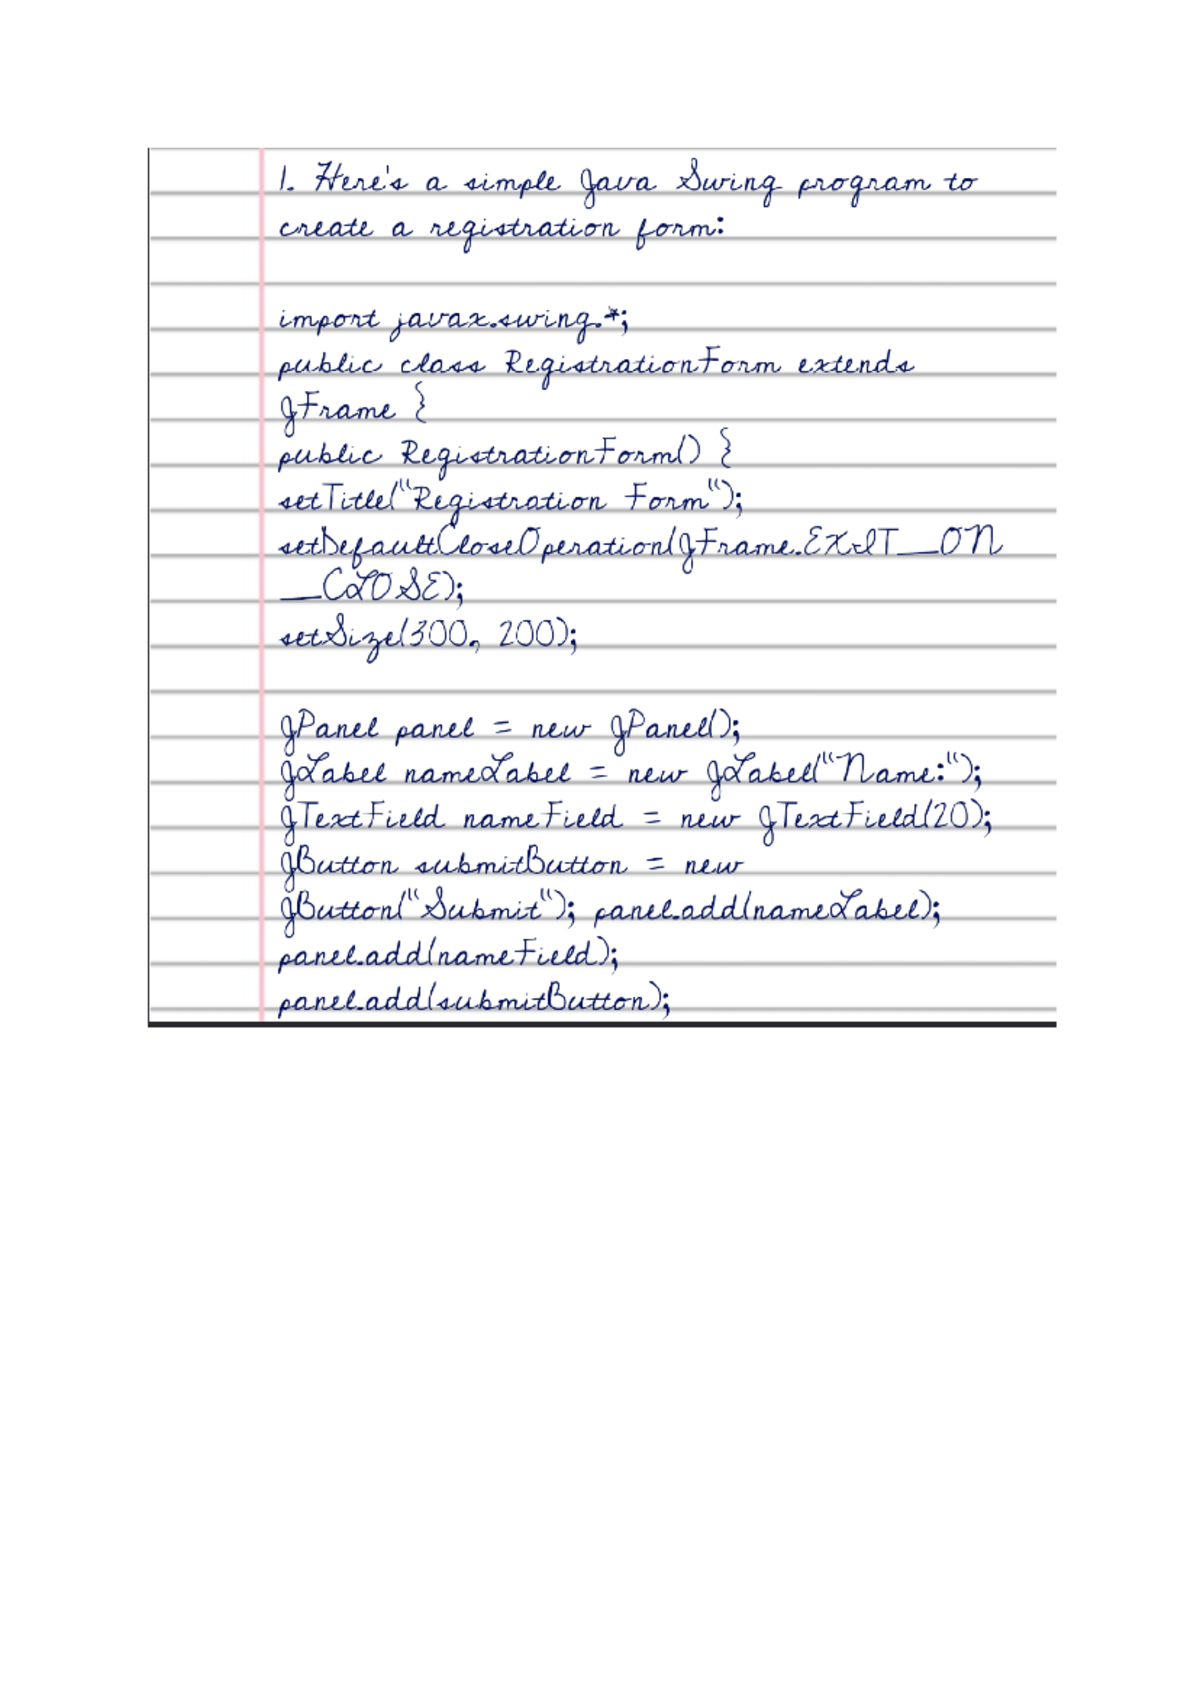 1. Here's a simple Java Swing program to
create a registration form:
import javax.swing.*;
public class RegistrationForm extends
JFrame {
public RegistrationForm() {
setTitle("Registration Form");
setDefaultCloseOperation(JFrame.EXIT_ON
_CLOSE);
setSize(300, 200);
JPanel panel = new JPanel();
JLabel nameLabel = new JLabel("Name:");
JTextField nameField = new JTextField(20);
JButton submitButton = new
JButton("Submit"); panel.add(nameLabel);
panel.add(nameField);
panel.add(submitButton);